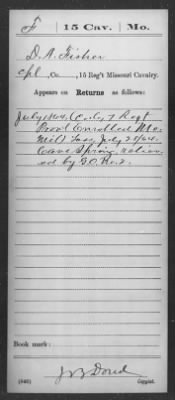 F | 15 Cav. | Mo.
D. A. Fisher
Cpl, Co. , 15 Reg't Missouri Cavalry.
Appears on
Returns as follows:
July 1864, Co. 7 Regt
Prov'l Enrolled Mo.
Milt July 20/64.
Cave Spring, reliev-
ed by G.O. No. 2.
Book mark:
(546)
Copyist.